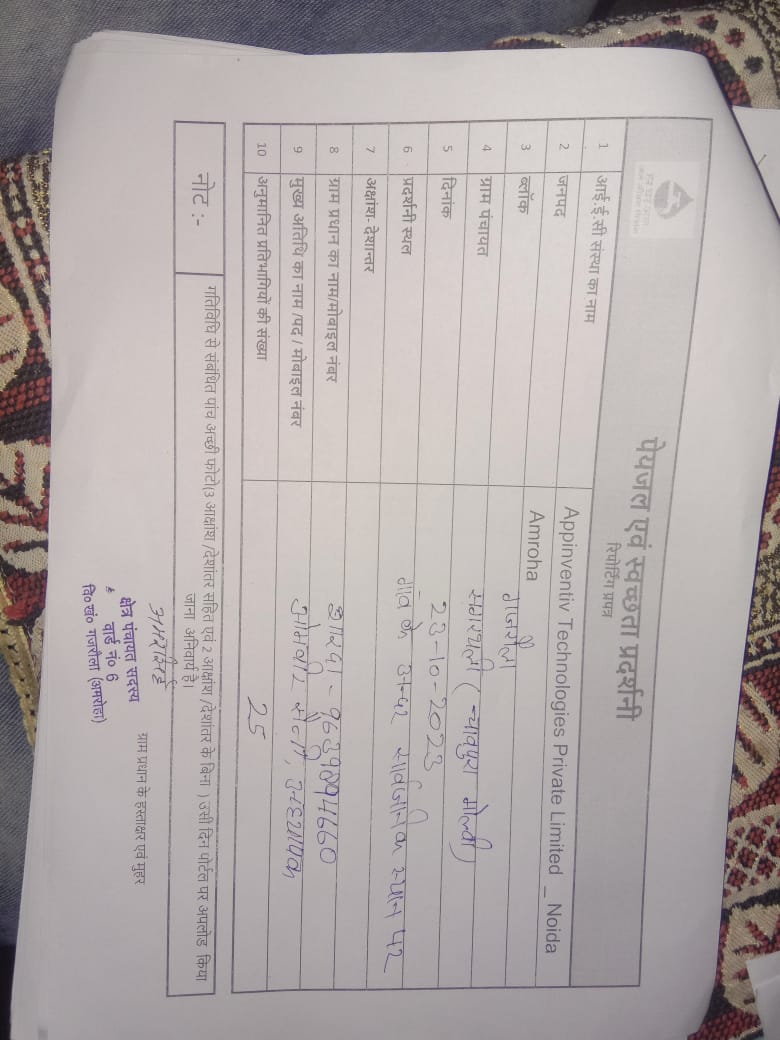 पेयजल एवं स्वच्छता प्रदर्शनी
रिपोर्टिंग प्रपत्र
1 आई.ई.सी संस्था का नाम Appinventiv Technologies Private Limited _ Noida
2 जनपद Amroha
3 ब्लॉक गजरौला
4 ग्राम पंचायत
5 दिनांक 23-10-2023
6 प्रदर्शनी स्थल गांव के अन्दर सार्वजनिक स्थान पर
7 अक्षांश- देशान्तर
8 ग्राम प्रधान का नाम/मोबाइल नंबर
9 मुख्य अतिथि का नाम /पद / मोबाइल नंबर
10 अनुमानित प्रतिभागियों की संख्या 25
नोट :- गतिविधि से संबंधित पांच अच्छी फोटो(3 आक्षांश /देशांतर सहित एवं 2 आक्षांश /देशांतर के बिना ) उसी दिन पोर्टल पर अपलोड किया
जाना अनिवार्य है।
क्षेत्र पंचायत सदस्य
वार्ड नं० 6
वि०खं० गजरौला (अमरोहा)
ग्राम प्रधान के हस्ताक्षर एवं मुहर